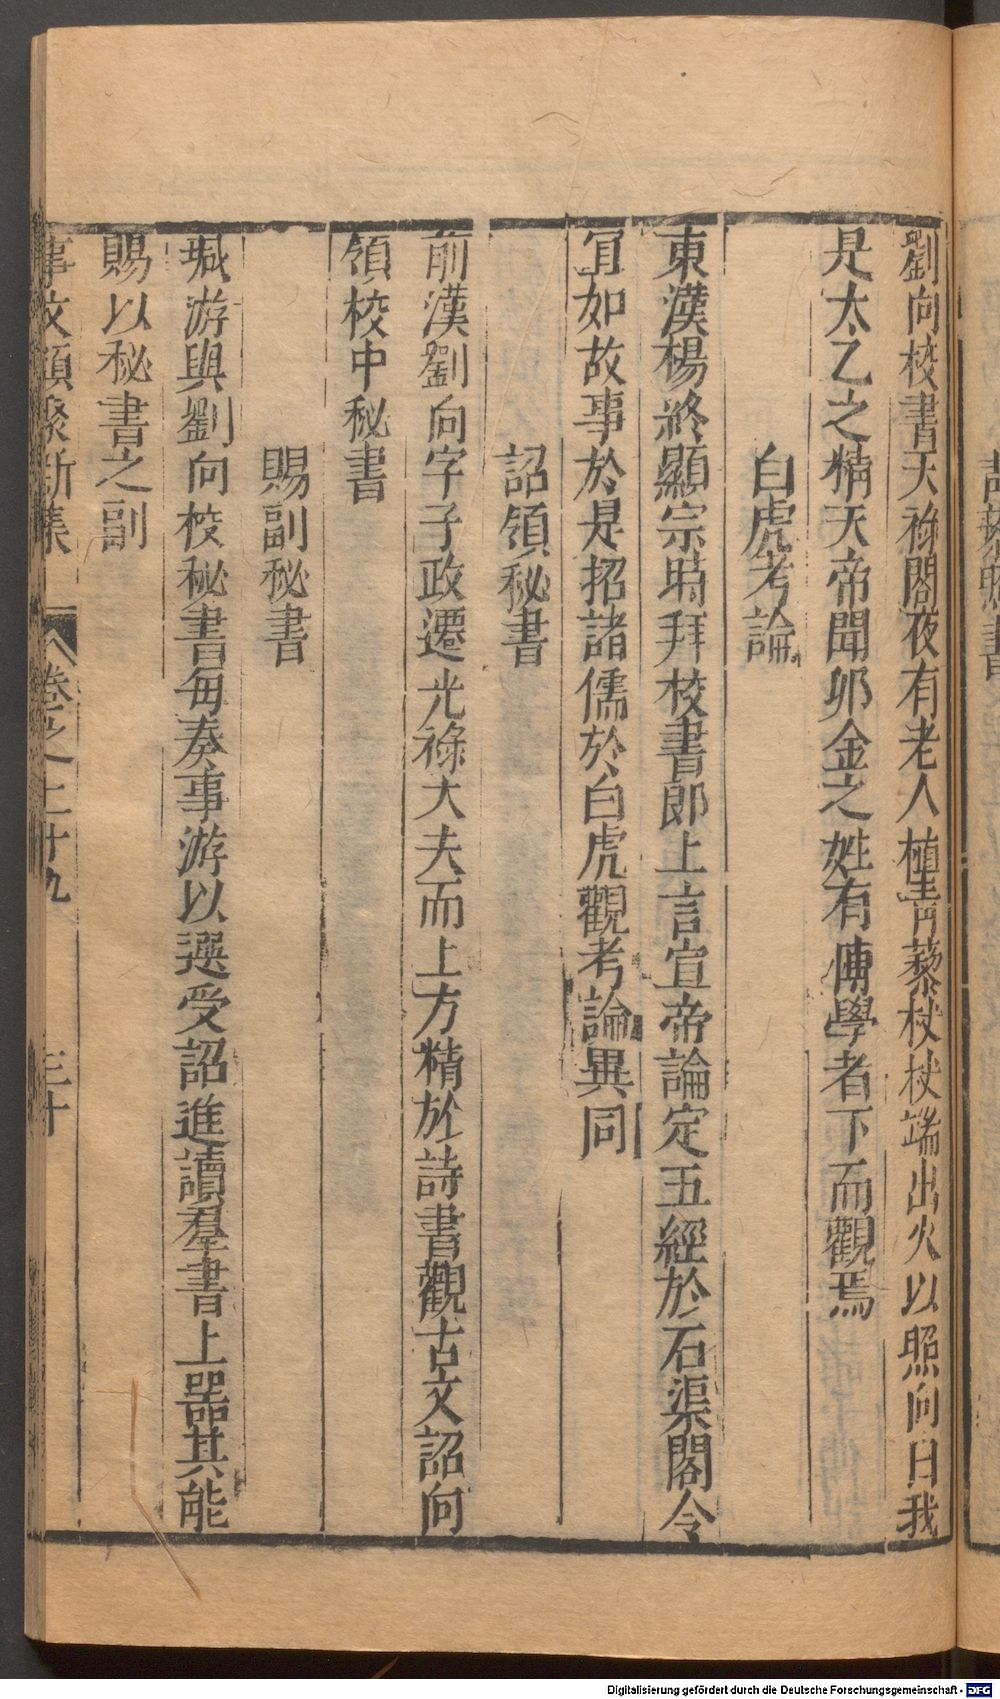 劉向校書天祿閣夜有老人植青藜杖杖端出火以照向曰我
是太乙之精天帝聞卯金之姓有博學者下而觀焉
白虎考論
東漢楊終顯宗時拜校書郎上言宣帝論定五經於石渠閣令
宜如故事於是招諸儒於白虎觀考論異同
詔領秘書
前漢劉向字子政遷光祿大夫而上方精於詩書觀古文詔向
領校中秘書
賜副秘書
班游與劉向校秘書每奏事游以選受詔進讀羣書上器其能
賜以秘書之副
事文類聚新集 卷之二十九 三十
Digitalisierung gefördert durch die Deutsche Forschungsgemeinschaft - DFG